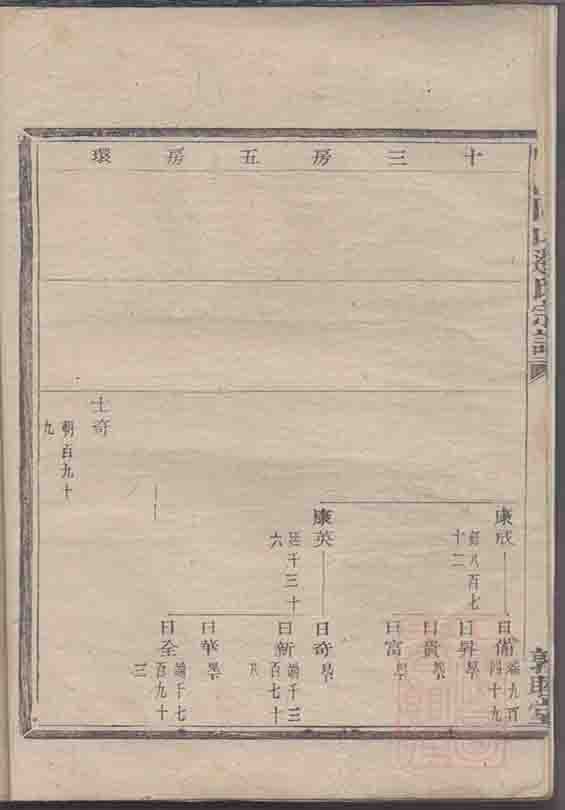 十三房五房環
康成
鍾八百七
十二
康英
廷千三十
六
士奇
朝百九十
九
日備
端九百
四十九
日昇學
日貴學
日富學
日奇學
日新
端千三
百七十
八
日華學
日全
端千七
百九十
三
氏宗譜
敦睦堂